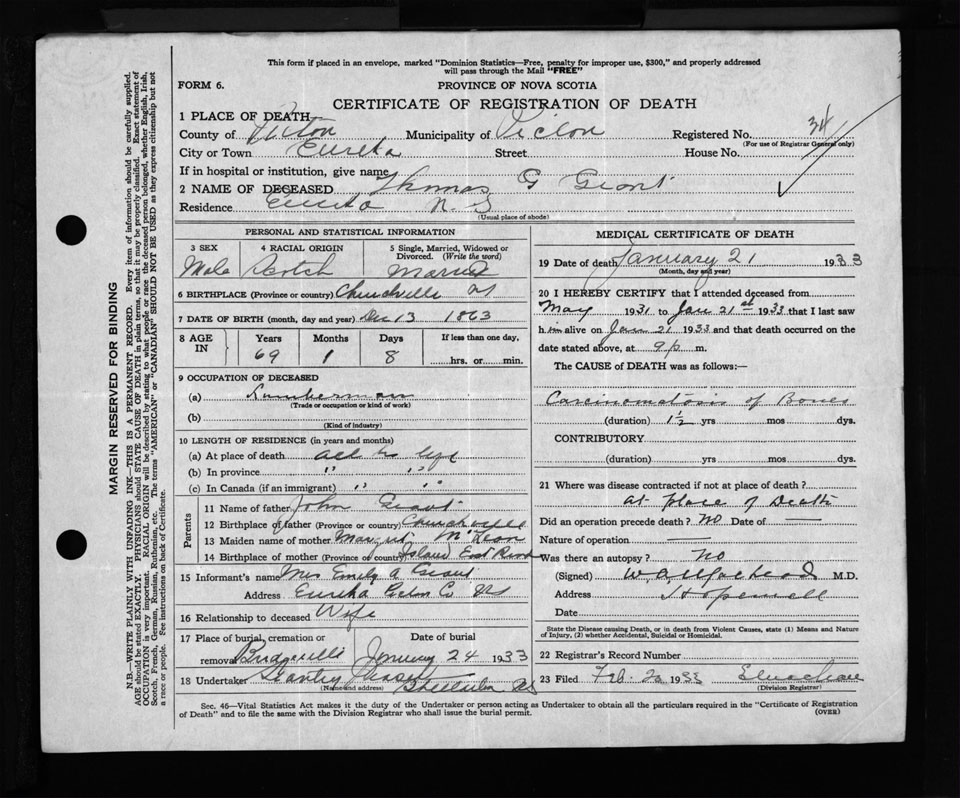 This form if placed in an envelope, marked "Dominion Statistics—Free, penalty for improper use, $300," and properly addressed
will pass through the Mail "FREE"
FORM 6.
PROVINCE OF NOVA SCOTIA
CERTIFICATE OF REGISTRATION OF DEATH
1 PLACE OF DEATH
County of Pictou Municipality of Pictou Registered No. 34
(For use of Registrar General only)
City or Town Eureka Street House No.
If in hospital or institution, give name
2 NAME OF DECEASED Thomas G Grant
Residence Eureka N. S
(Usual place of abode)
PERSONAL AND STATISTICAL INFORMATION
3 SEX 4 RACIAL ORIGIN 5 Single, Married, Widowed or
Divorced. (Write the word)
Male Scotch Married
6 BIRTHPLACE (Province or country) Churchville NS
7 DATE OF BIRTH (month, day and year) Dec 13 1863
8 AGE IN Years Months Days If less than one day,
69 1 8 hrs. or min.
9 OCCUPATION OF DECEASED
(a) Lumberman
(Trade or occupation or kind of work)
(b)
(Kind of industry)
10 LENGTH OF RESIDENCE (in years and months)
(a) At place of death all his life
(b) In province " " "
(c) In Canada (if an immigrant) " "
Parents
11 Name of father John Grant
12 Birthplace of father (Province or country) Churchville
13 Maiden name of mother Margret McLean
14 Birthplace of mother (Province or country) Island East River
15 Informant's name Mrs Emily A Grant
Address Eureka Pictou Co NS
16 Relationship to deceased Wife
17 Place of burial, cremation or Date of burial
removal Bridgeville January 24 1933
18 Undertaker
(Name and address)
MEDICAL CERTIFICATE OF DEATH
19 Date of death January 21 1933
(Month, day and year)
20 I HEREBY CERTIFY that I attended deceased from
May 1931 to Jan 21st 1933 that I last saw
h im alive on Jan 21 1933 and that death occurred on the
date stated above, at 9 p m.
The CAUSE of DEATH was as follows:—
Carcinomatosis of Bones
(duration) 1½ yrs mos dys.
CONTRIBUTORY
(duration) yrs mos dys.
21 Where was disease contracted if not at place of death?
at place of Death
Did an operation precede death? No Date of —
Nature of operation —
Was there an autopsy? No
(Signed) M.D.
Address Hopewell
Date
State the Disease causing Death, or in death from Violent Causes, state (1) Means and Nature
of Injury, (2) whether Accidental, Suicidal or Homicidal.
22 Registrar's Record Number
23 Filed Feb. 1933
(Division Registrar)
Sec. 46—Vital Statistics Act makes it the duty of the Undertaker or person acting as Undertaker to obtain all the particulars required in the "Certificate of Registration
of Death" and to file the same with the Division Registrar who shall issue the burial permit. (OVER)
MARGIN RESERVED FOR BINDING
N.B.—WRITE PLAINLY WITH UNFADING INK—THIS IS A PERMANENT RECORD. Every item of information should be carefully supplied.
AGE should be stated EXACTLY. PHYSICIANS should STATE CAUSE OF DEATH in plain terms, so that it may be properly classified. Exact statement of
OCCUPATION is very important. RACIAL ORIGIN will be described by stating to what people or race the deceased person belonged, whether English, Irish,
Scotch, French, German, Russian, Ruthenian, etc. The terms "AMERICAN" or "CANADIAN" SHOULD NOT BE USED as they express citizenship but not
a race or people. See instructions on back of Certificate.